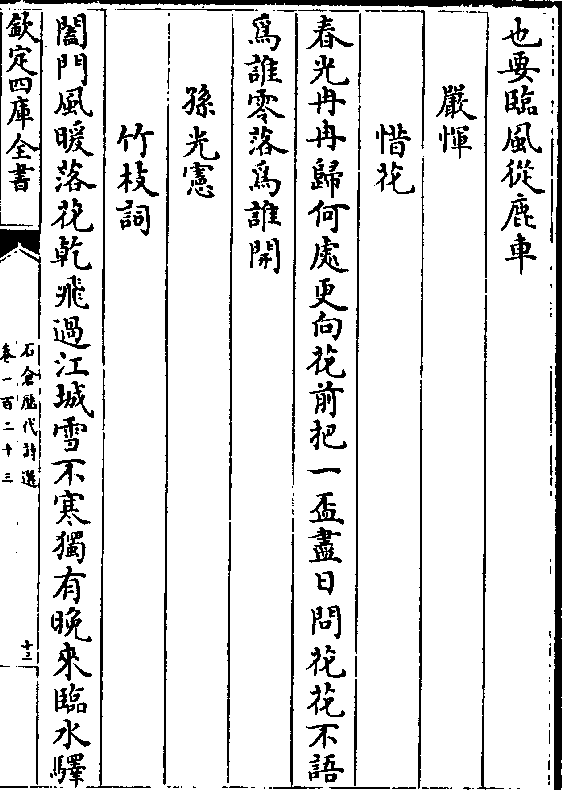 也要臨風從鹿車
嚴惲
惜花
春光冉冉歸何處更向花前把一盃盡日問花花不語
爲誰零落爲誰開
孫光憲
竹枝詞
閶門風暖落花乾飛過江城雪不寒獨有晚來臨水驛
欽定四庫全書
石倉歷代詩選
卷一百二十三
十三